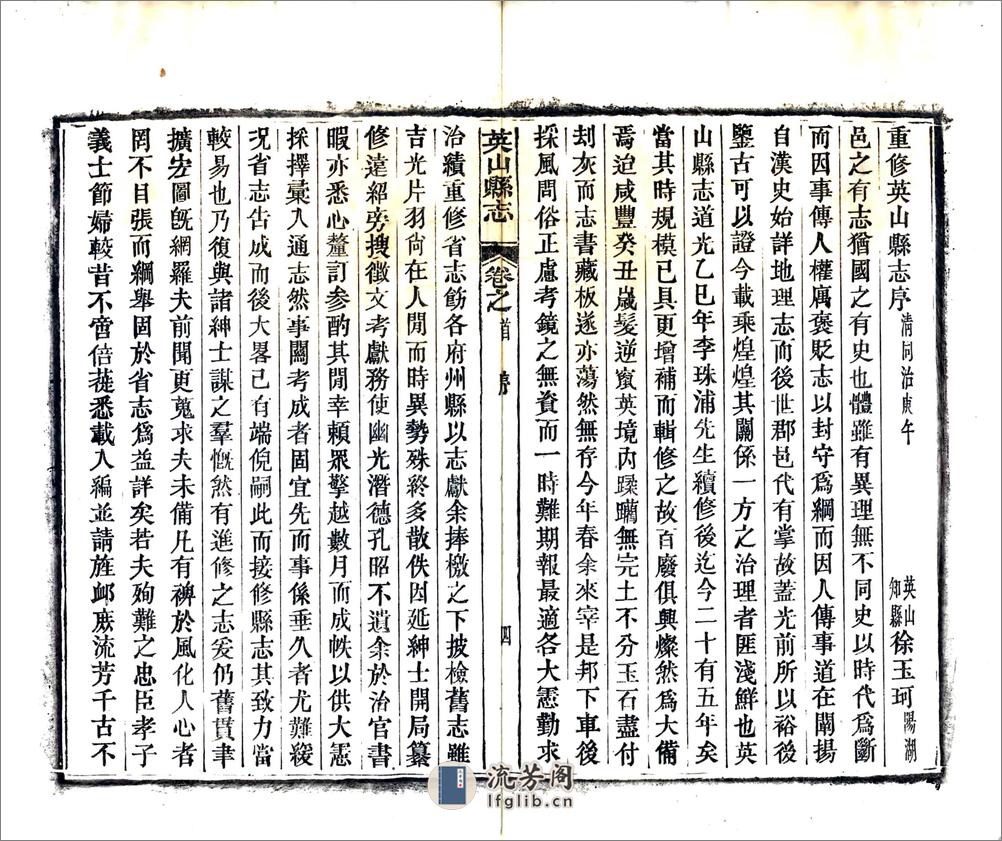 重修英山縣志序 清同治庚午 英山知縣徐玉珂陽湖
邑之有志猶國之有史也體雖有異理無不同史以時代爲斷
而因事傳人權寓褒貶志以封守爲綱而因人傳事道在闡揚
自漢史始詳地理志而後世郡邑代有掌故蓋光前所以裕後
鑒古可以證今載乘煌煌其關係一方之治理者匪淺鮮也英
山縣志道光乙巳年李珠浦先生續修後迄今二十有五年矣
當其時規模已具更增補而輯修之故百廢俱興燦然爲大備
焉迨咸豐癸丑歲髮逆竄英境內蹂躪無完土不分玉石盡付
刼灰而志書藏板遂亦蕩然無存今年春余來宰是邦下車後
採風問俗正慮考鏡之無資而一時難期報最適各大憲勤求
英山縣志 卷之首 序 四
治績重修省志飭各府州縣以志獻余捧檄之下披檢舊志雖
吉光片羽尙在人閒而時異勢殊終多散佚因延紳士開局纂
修遠紹旁搜徵文考獻務使幽光潛德孔昭不遺余於治官書
暇亦悉心釐訂參酌其閒幸賴眾擎越數月而成帙以供大憲
採擇彙入通志然事關考成者固宜先而事係垂久者尤難緩
況省志告成而後大畧已有端倪嗣此而接修縣志其致力當
較易也乃復與諸紳士謀之羣慨然有進修之志爰仍舊貫聿
擴宏圖旣網羅夫前聞更蒐求夫未備凡有裨於風化人心者
罔不目張而綱舉固於省志爲益詳矣若夫殉難之忠臣孝子
義士節婦較昔不啻倍蓰悉載入編並請旌卹庶流芳千古不
流芳阁
lfglib.cn